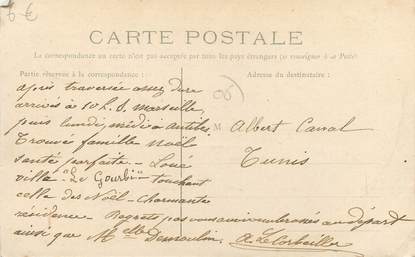 6 €
CARTE POSTALE
La correspondance au recto n'est pas acceptée par tous les pays étrangers (se renseigner à la Poste)
Partie réservée à la correspondance :
Adresse du destinataire :
après traversée assez dure
arrivés à 10 h. s. marseille,
puis lundi, midi à Antibes
Trouvé famille Noël
santé parfaite - Loué
villa "Le Gourbi" touchant
celle des Noël - charmante
résidence - Regrets pas vous au départ
ainsi que Melle Desmoulin. A. LeCorbeiller
M Albert Canal
Tunis